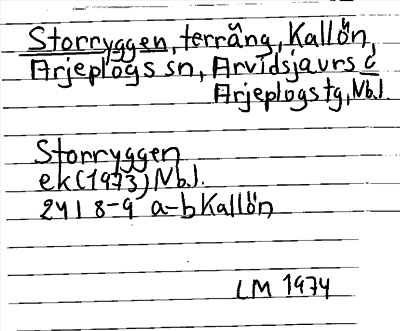 Storryggen, terräng, Kallön,
Arjeplogs sn, Arvidsjaurs o
Arjeplogs tg, Nb.l.
Storryggen
ek (1973) Nb.l.
24I 8-9 a-b Kallön
LM 1974